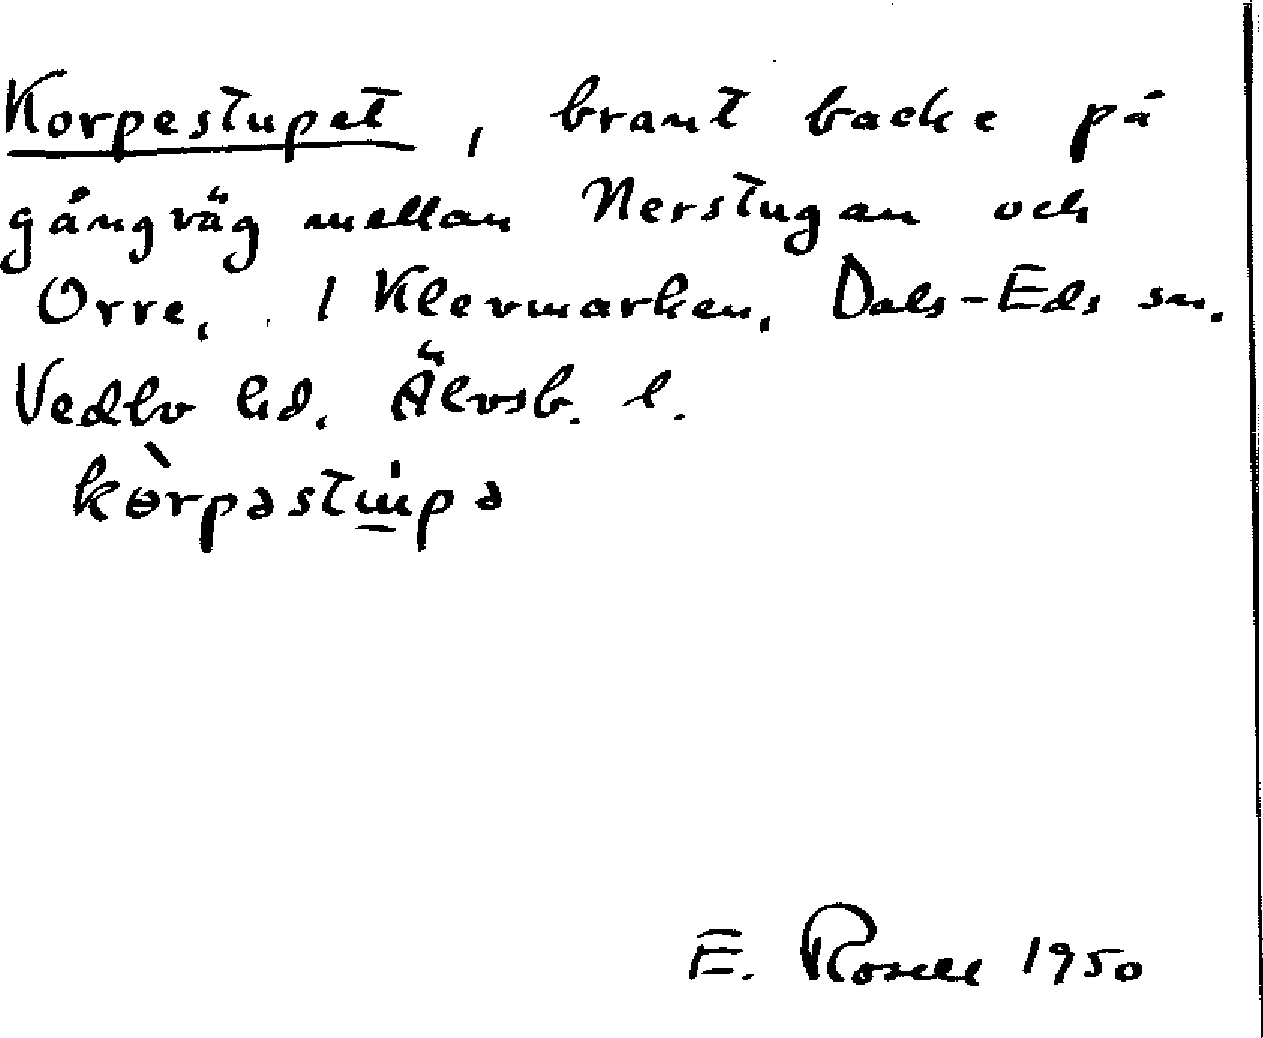 Korpestupet, brant backe på
gångväg mellan Nerstugan och
Orre, i Klevmarken, Dals-Eds sn.
Vedbo hd. Älvsb. l.
kɵ̀rpəstu̱̍pə
E. Rosell 1950